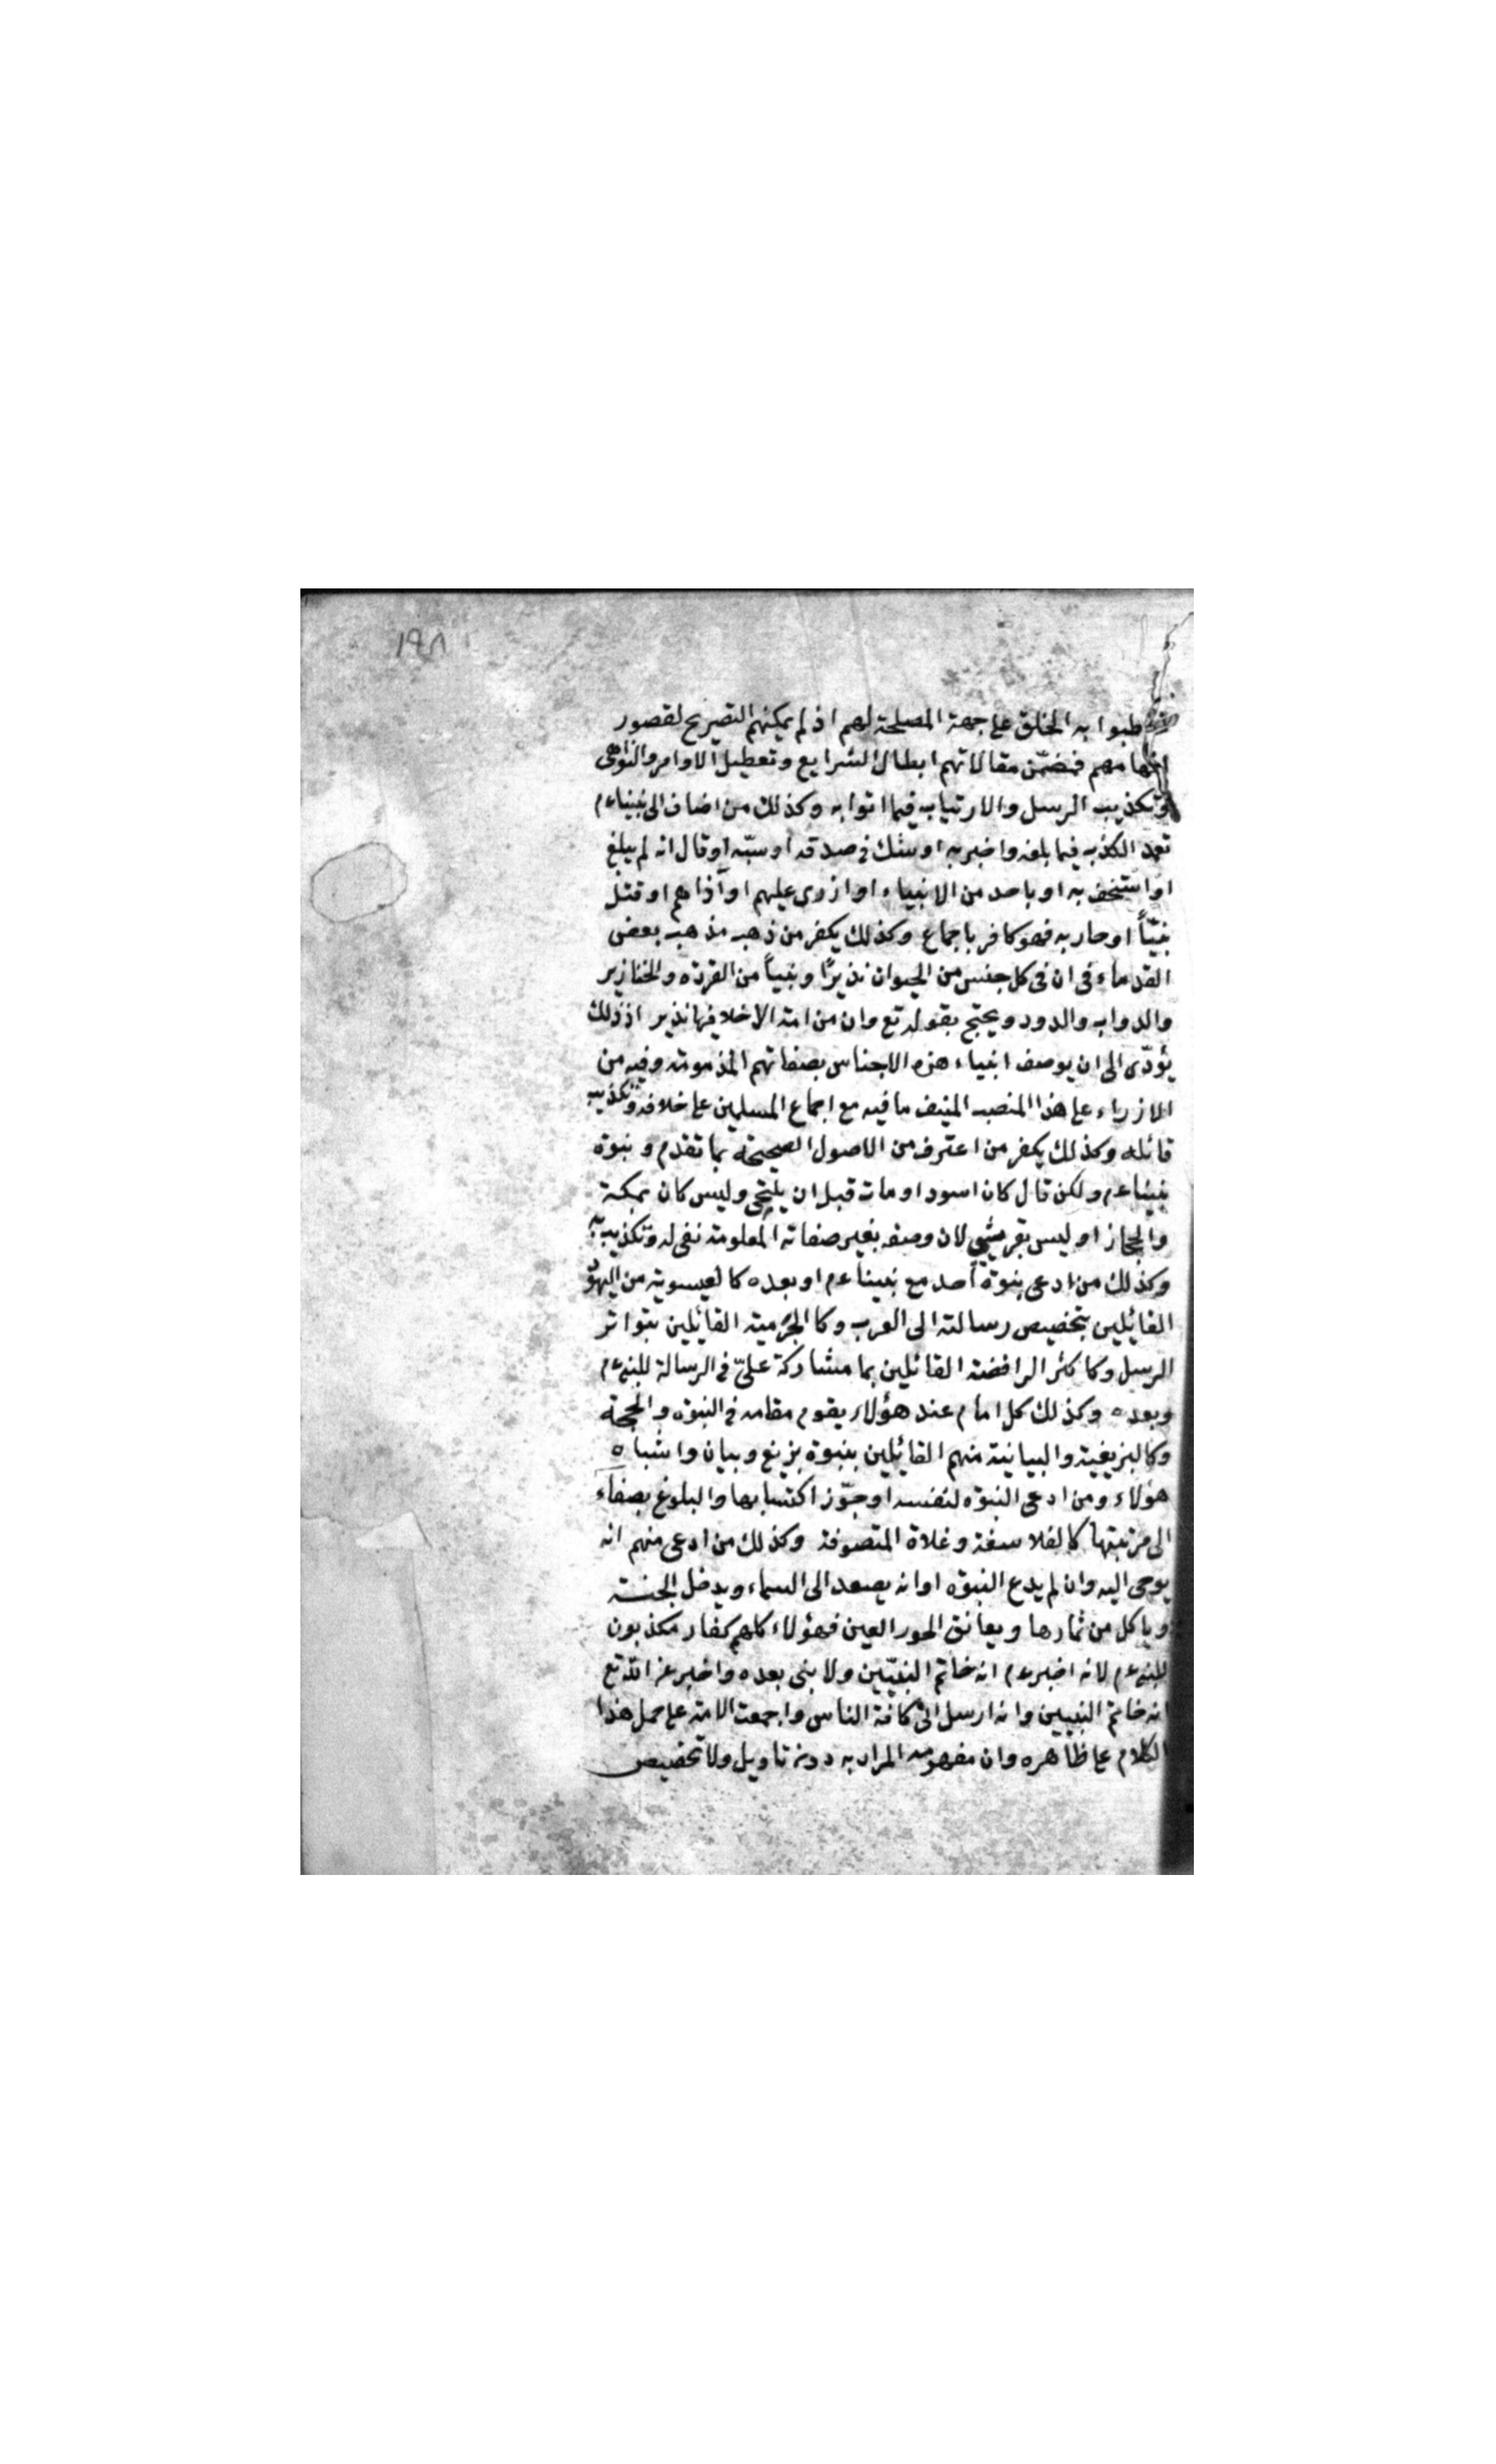 ١٩٨
خاطبوا به الخلق على جهة المصلحة لهم اذ لم يمكنهم التصريح لقصور
افهامهم فمضمّن مقالاتهم ابطال الشرايع وتعطيل الاوامر والنواهى
وتكذيب الرسل والارتياب فيما اتوا به وكذلك من اضاف الى نبيناءم
تعمد الكذب فيما بلغه واخبر به او شك فى صدقه او سبّه او قال انه لم يبلغ
او استخف به او باحد من الانبياء او ازرى عليهم او آذاهم او قتل
نبيّاً او حاربه فهو كافر باجماع وكذلك يكفر من ذهب مذهب بعض
القدماء فى ان فى كل جنس من الحيوان نذيرًا ونبياً من القردة والخنازير
والدواب والدود ويحتج بقوله تع وان من امة الا خلا فيها نذير اذ ذلك
يؤدّى الى ان يوصف انبياء هذه الاجناس بصفاتهم المذمومة وفيه من
الازراء على هذا المنصب المنيف ما فيه مع اجماع المسلمين على خلافه وتكذيب
قائله وكذلك يكفر من اعترف من الاصول الصحيحة بما تقدم ونبوة
نبيناءم ولكن قال كان اسود او مات قبل ان يلتحى وليس كان بمكة
والحجاز او ليس بقريشي لان وصفه بغير صفاته المعلومة نفى له وتكذيب به
وكذلك من ادعى بنبوة احد مع نبيناءم او بعده كالعيسوية من اليهود
القائيلين بتخصيص رسالته الى العرب وكالجرمية القائيلين بتواتر
الرسل وكاكثر الرافضة القائلين بما مشاركة علىّ فى الرسالة للنبىءم
وبعده وكذلك كل امام عند هؤلاء يقوم مقامه فى النبوة والحجة
وكالبزيغية والبيانية منهم القائيلين بنبوة بزيغ وبيان واشباه
هؤلاء ومن ادعى النبوة لنفسه او جوّز اكتسابها والبلوغ بصفاء
الى مرتبتها كالفلاسفة وغلاة المتصوفة وكذلك من ادعى منهم انه
يوحى اليه وان لم يدع النبوة او انه يصعد الى السماء ويدخل الجنة
وياكل من ثمارها ويعانق الحور العين فهؤلاء كلهم كفار مكذبون
للنبىءم لانه اخبرءم انه خاتم النبيّين ولا نبى بعده واخبر عن الله تع
انه خاتم النبيين وانه ارسل الى كافة الناس واجمعت الامة على حمل هذا
الكلام على ظاهره وان مفهومه المراد به دون تاويل ولا تخصيص